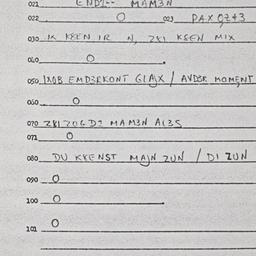 021 ENDI-- MAM3N
022 O 023 PAX QZ+3
030 IK KEEN IR N, ZKI KSEN MIX
040 O
050 IXOB EMD3RKONT GLAJX / AVD3R MOMENT
060 O
070 ZKI ZOGDI MAM3N AL3S
071 O
080 DU KKENST MAJN ZUN / DI ZUN
090 O
100 O
101 O